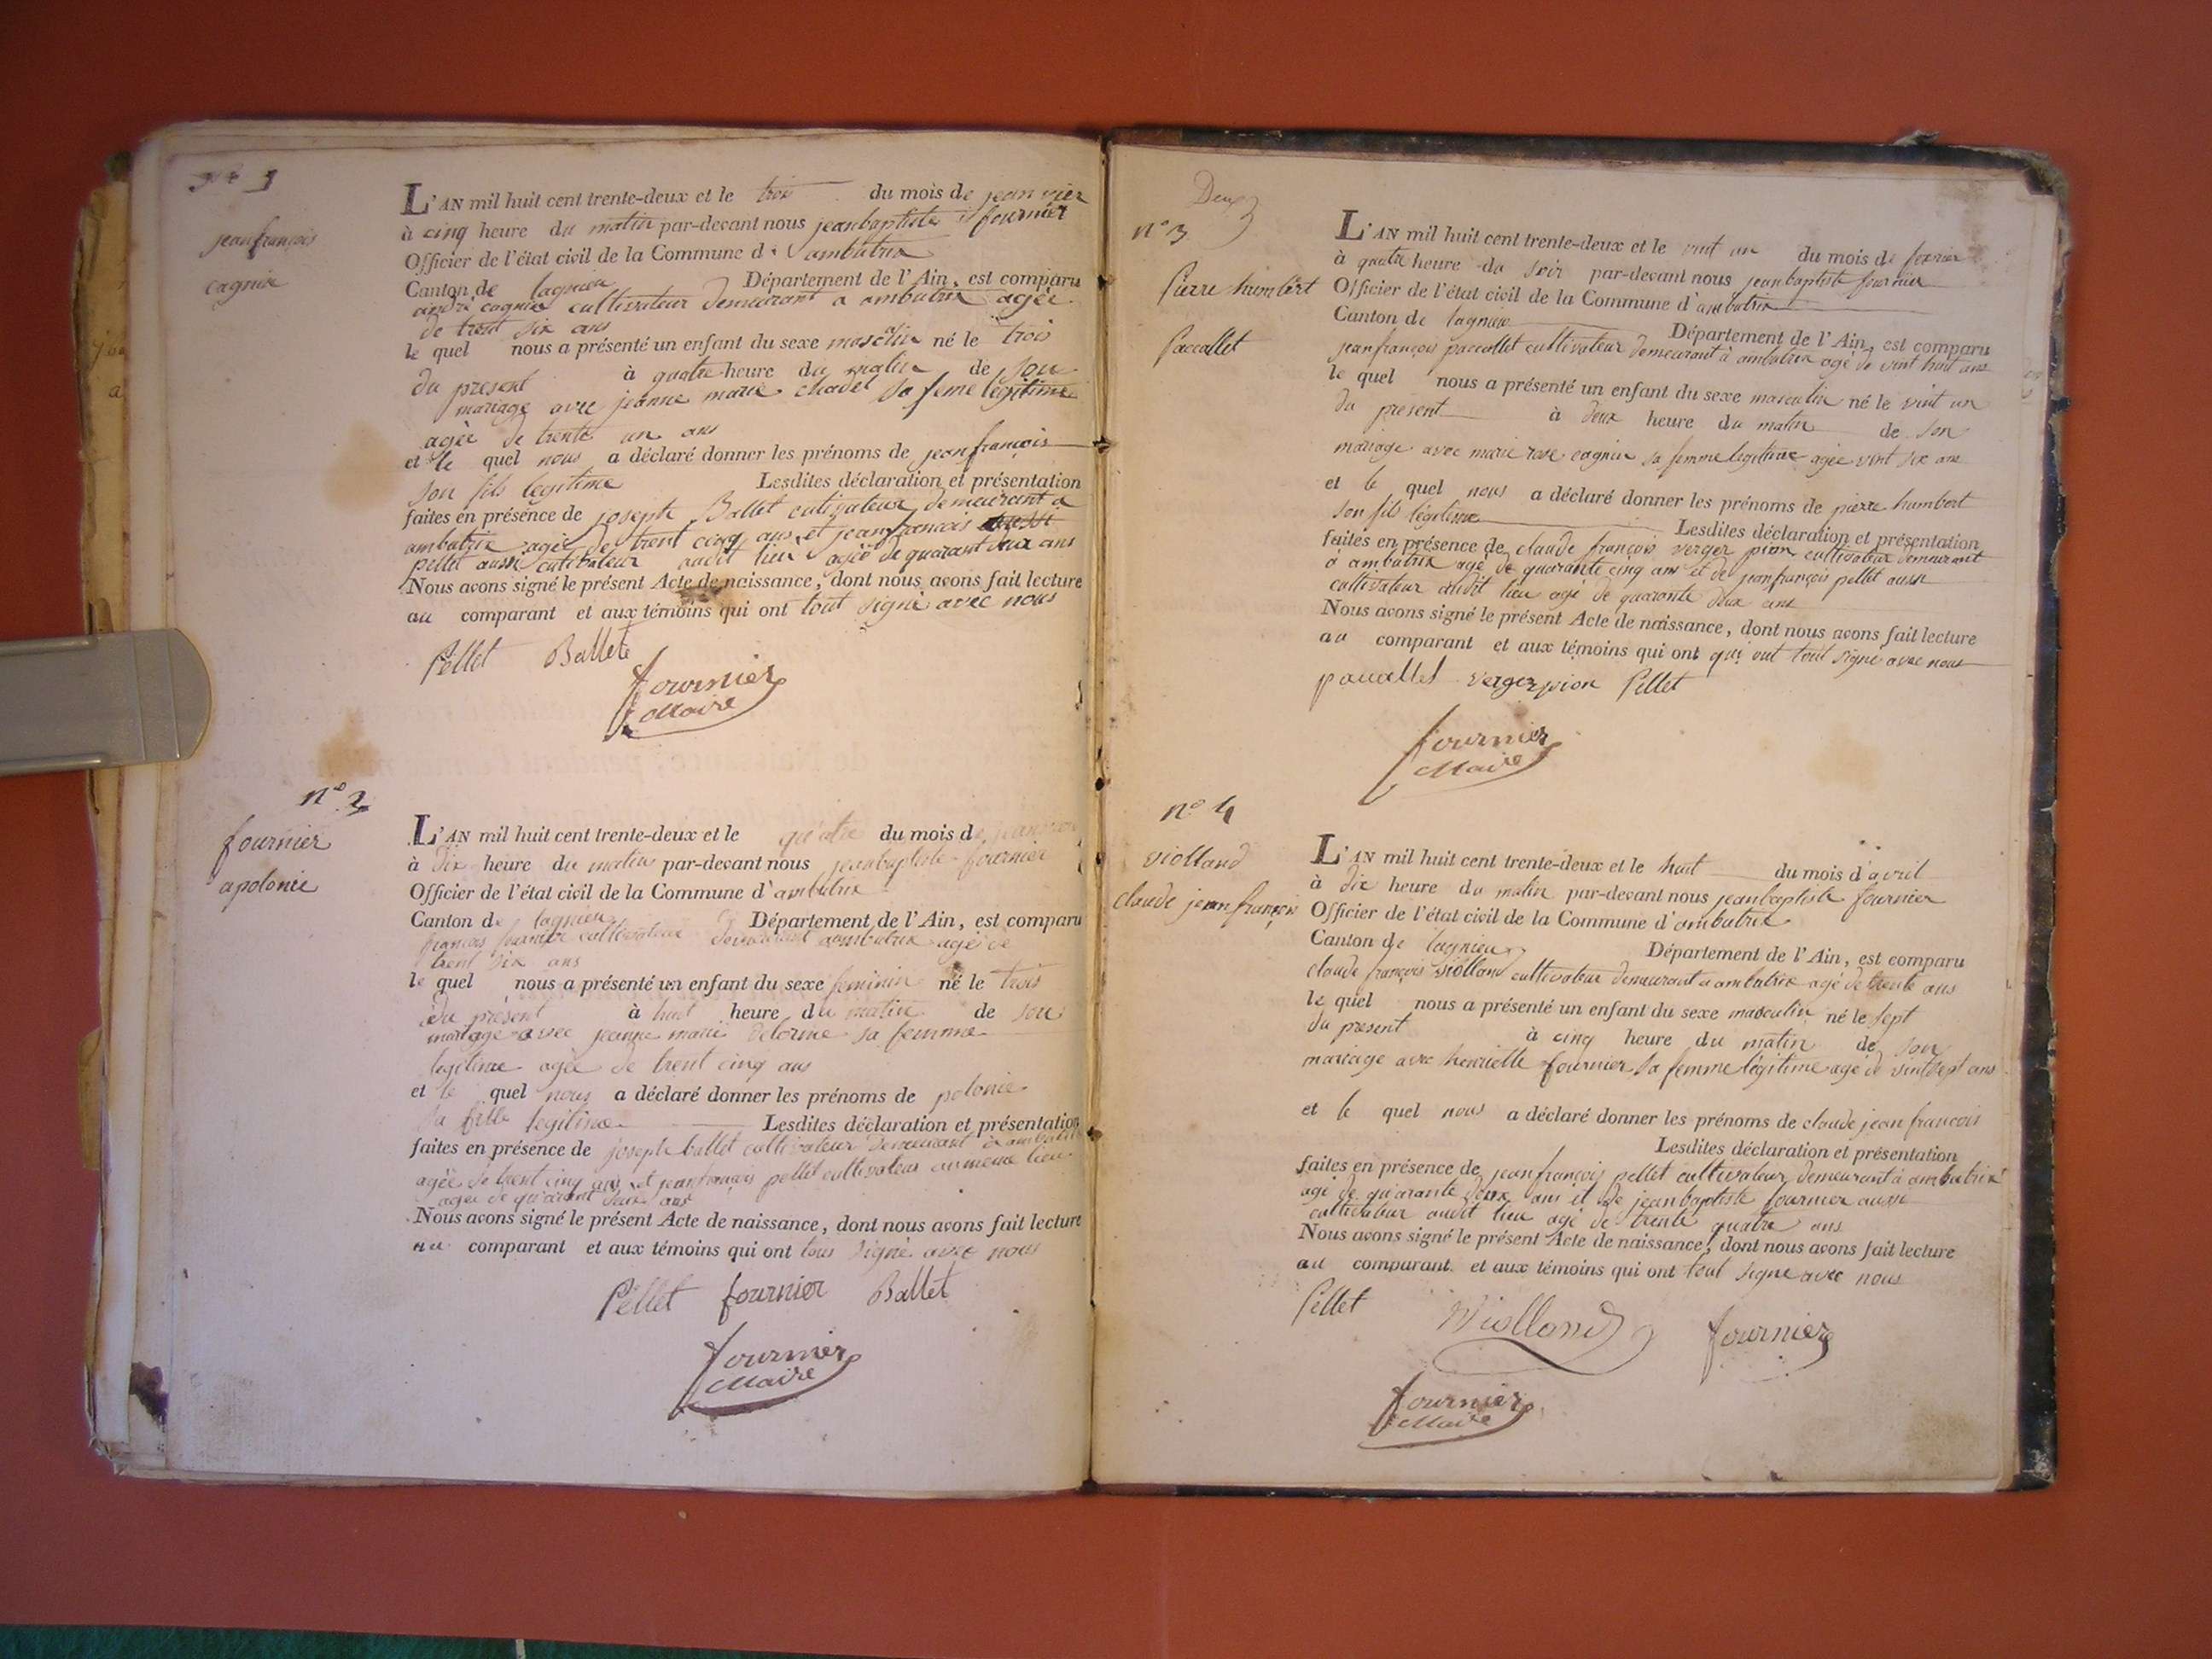 n° 1
jeanfrançois
cagnin
L'AN mil huit cent trente-deux et le trois du mois de jeanvier
à cinq heure du matin par-devant nous jeanbaptiste fournier
Officier de l'état civil de la Commune d'ambutrix
Canton de lagnieu Département de l'Ain, est comparu
andré cagnin cultivateur demeurant a ambutrix agée
de trent six ans
le quel nous a présenté un enfant du sexe masculin né le trois
du present à quatre heure du matin de son
mariage avec jeanne marie chadel sa feme legitime
agée de trente un ans
et le quel nous a déclaré donner les prénoms de jean françois
son fils legitime Lesdites déclaration et présentation
faites en présence de joseph Ballet cutivateur demeurant a
ambutrix agée de trent cinq ans et jeanfrancois
pellet aussi cutivateur audit lieu agée de quarant deux ans
Nous avons signé le présent Acte de naissance, dont nous avons fait lecture
au comparant et aux témoins qui ont tout signé avec nous
Pellet Ballet
fournier
Maire
n° 2
fournier
apolonie
L'AN mil huit cent trente-deux et le quatre du mois de jeanvier
à dix heure du matin par-devant nous jeanbaptiste fournier
Officier de l'état civil de la Commune d'ambutrix
Canton de lagnieu Département de l'Ain, est comparu
françois fournier cultivateur demeurant aambutrix agé de
trent six ans
le quel nous a présenté un enfant du sexe feminin né le trois
du présent à huit heure du matin de son
mariage avec jeanne marie delorme sa femme
legitime agée de trent cinq ans
et le quel nous a déclaré donner les prénoms de polonie
sa fille legitime Lesdites déclaration et présentation
faites en présence de joseph ballet cultivateur demeurant a ambutrix
agée de trent cinq ans et jeanfrançois pellet cultivateur au meme lieu
agée de quarant deux ans
Nous avons signé le présent Acte de naissance, dont nous avons fait lecture
au comparant et aux témoins qui ont tous signé avec nous
Pellet fournier Ballet
fournier
Maire
Deux
n° 3
Pierre humbert
Paccallet
L'AN mil huit cent trente-deux et le vint un du mois de fevrier
à quatre heure du soir par-devant nous jeanbaptiste fournier
Officier de l'état civil de la Commune d'ambutrix
Canton de lagnieu Département de l'Ain, est comparu
jeanfrançois paccallet cultivateur demeurant à ambutrix agé de vint huit ans
le quel nous a présenté un enfant du sexe masculin né le vint un
du present à deux heure du matin de son
mariage avec marie rose cagnin sa femme legitime agée vint six ans
et le quel nous a déclaré donner les prénoms de pierre humbert
son fils légitime Lesdites déclaration et présentation
faites en présence de claude françois verger pion cultivateur demeurant
à ambutrix agé de quarante cinq ans et de jeanfrançois pellet aussi
cultivateur audit lieu agé de quarante deux ans
Nous avons signé le présent Acte de naissance, dont nous avons fait lecture
au comparant et aux témoins qui ont qui ont tout signé avec nous
paccallet vergerpion Pellet
fournier
Maire
n° 4
violland
claude jean françois
L'AN mil huit cent trente-deux et le huit du mois d'avril
à dix heure du matin par-devant nous jeanbaptiste fournier
Officier de l'état civil de la Commune d'ambutrix
Canton de lagnieu Département de l'Ain, est comparu
claude françois violland cultivateur demeurant a ambutrix agé de trente ans
le quel nous a présenté un enfant du sexe masculin né le sept
du present à cinq heure du matin de son
mariage avec henriette fournier sa femme légitime agé de vint sept ans
et le quel nous a déclaré donner les prénoms de claude jean françois
Lesdites déclaration et présentation
faites en présence de jeanfrançois pellet cultivateur demeurant à ambutrix
agé de quarante deux ans et de jeanbaptiste fournier aussi
cultivateur audit lieu agé de trente quatre ans
Nous avons signé le présent Acte de naissance, dont nous avons fait lecture
au comparant et aux témoins qui ont tout signé avec nous
Pellet Violland fournier
fournier
Maire